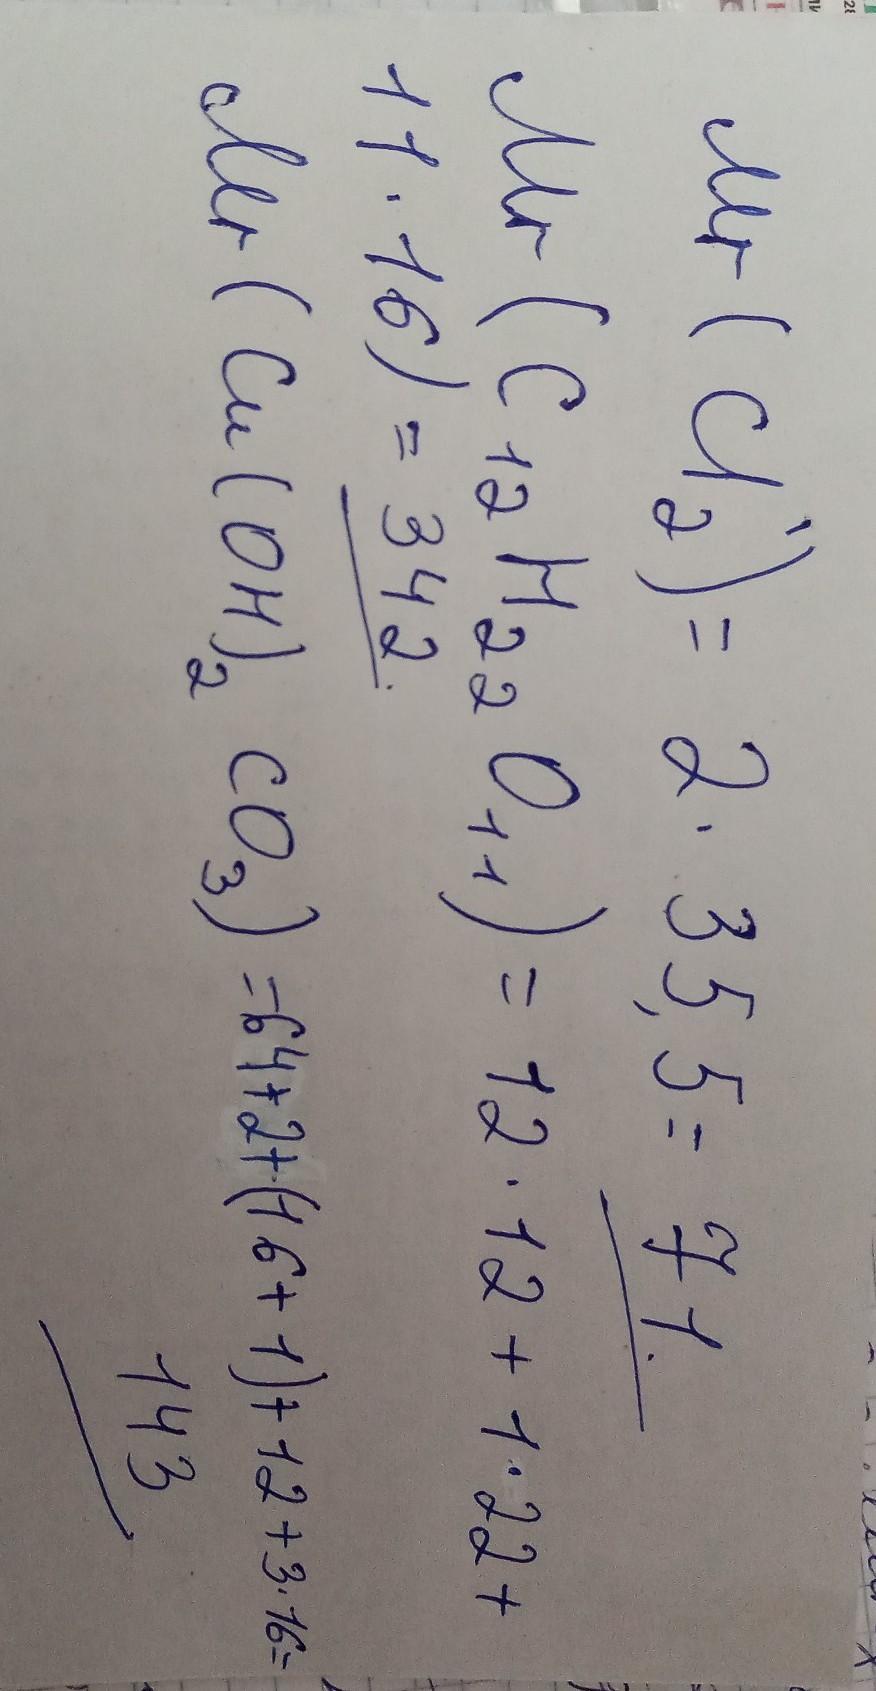 Mr(Cl2) = 2·35,5 = 71.
Mr(C12H22O11) = 12·12 + 1·22 +
11·16) = 342.
Mr(Cu(OH)2 CO3) = 64+2+(16+1)+12+3·16=
143